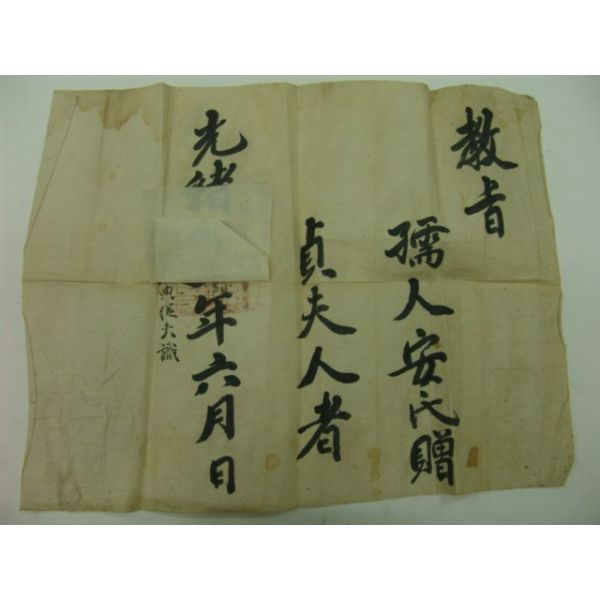 教旨
孺人安氏贈
貞夫人者
光緒 年六月 日